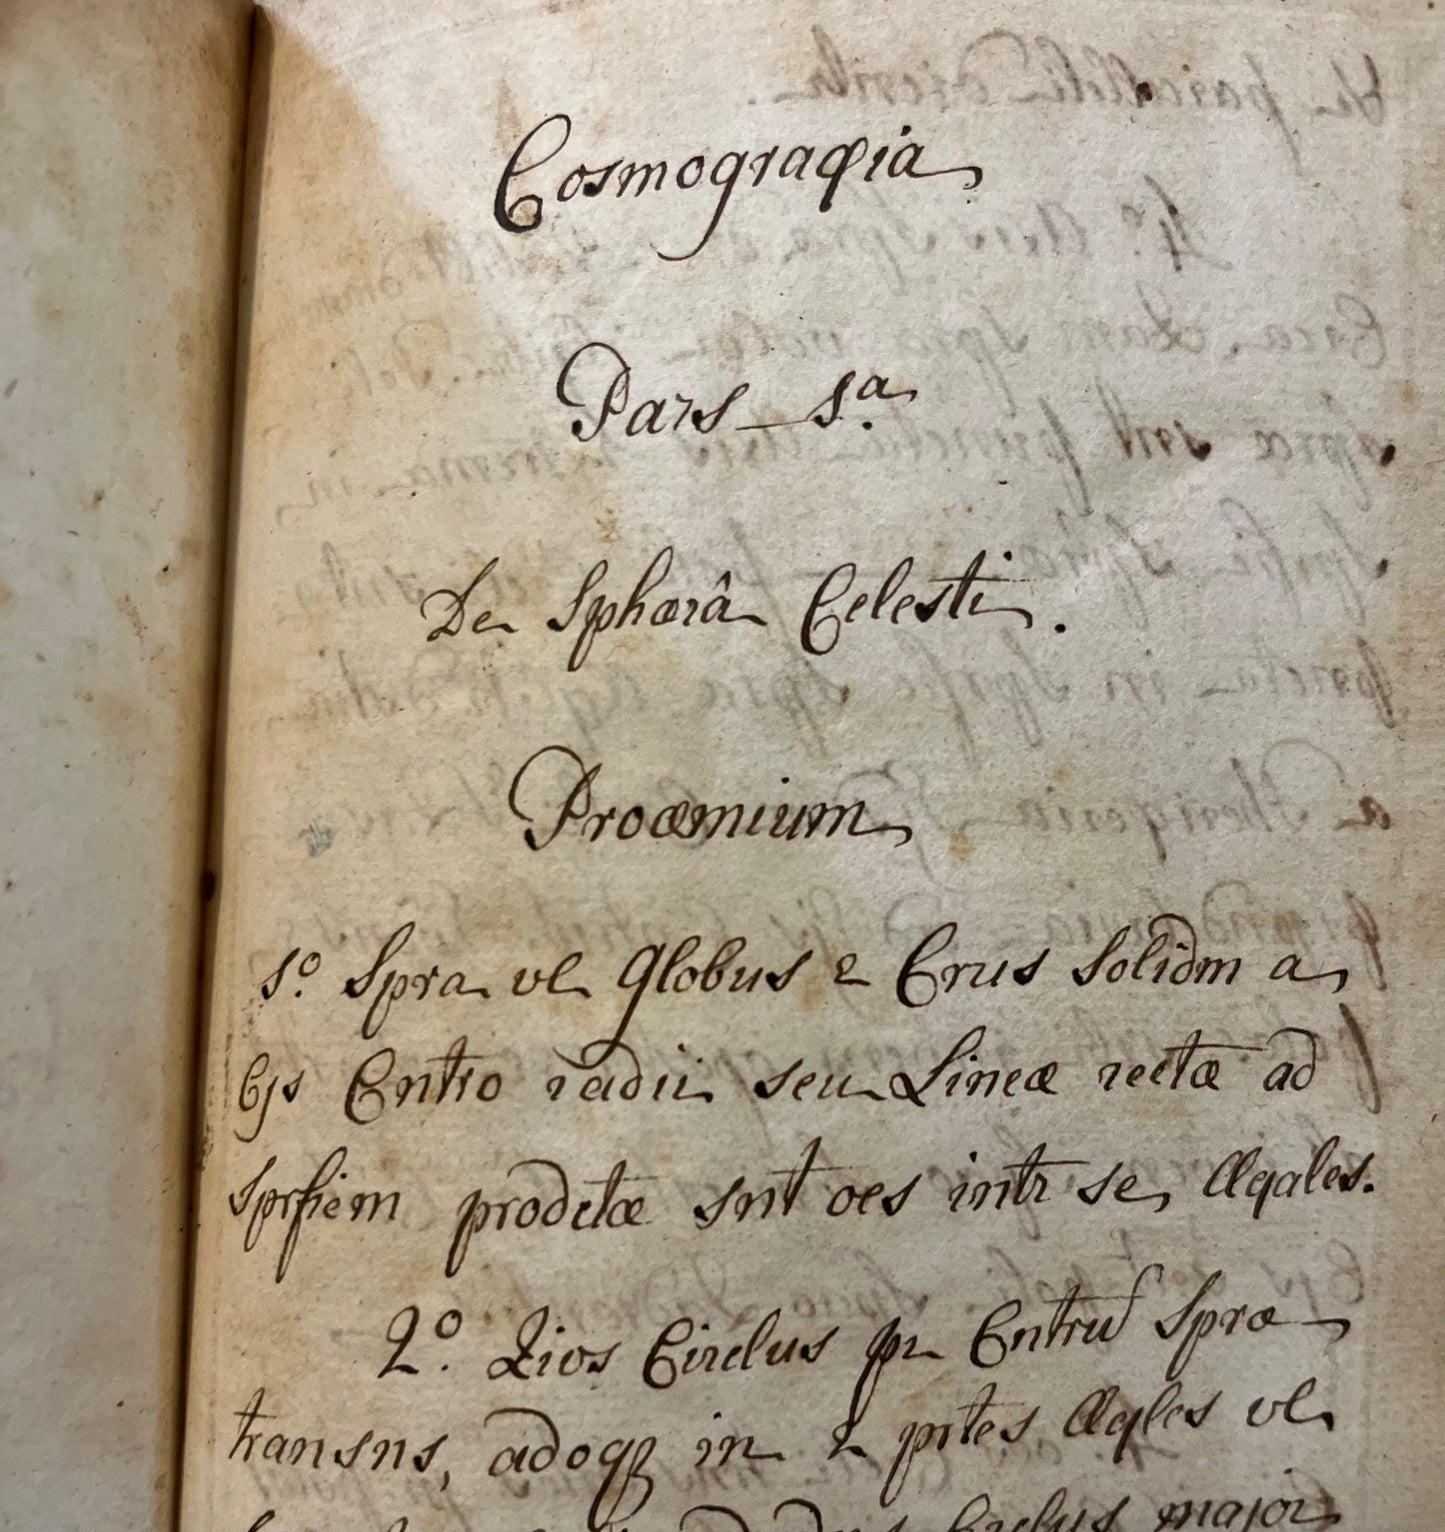 Cosmograφia
Pars 1.ª
De Sphærâ Celesti.
Proæmium
1.º Spra vl Globus 2 Crus Solidm a
Ejs Cntro radii seu Lineæ rectæ ad
Sprfiem prodctæ snt oes intr se Æqales.
2.º Circlus pr Cntru Spræ
transns, adoqȝ in 2 prtes Æqles vl
Circlus major